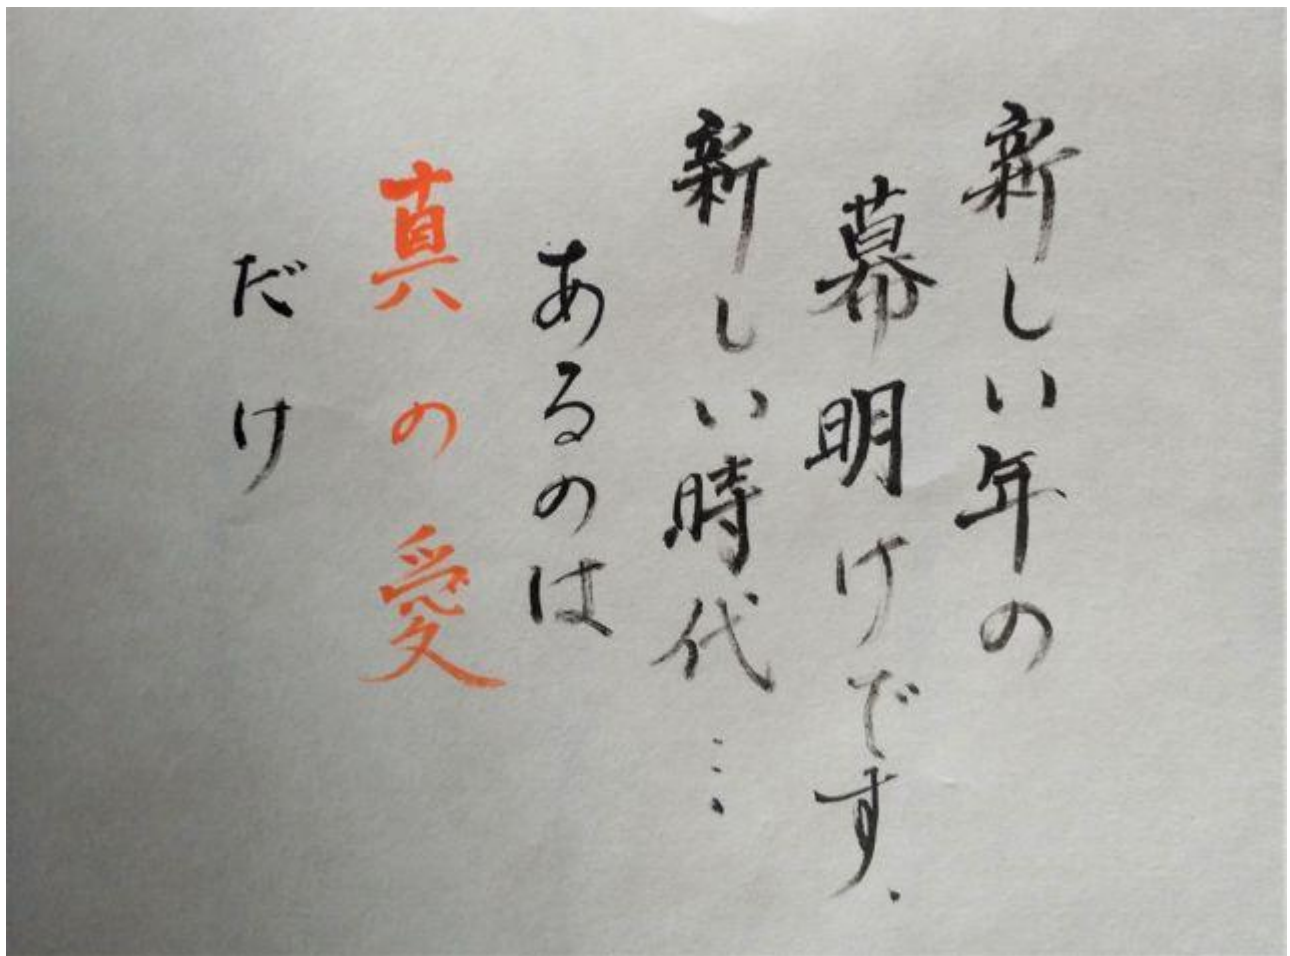 新しい年の
幕明けです.
新しい時代…
あるのは
真の愛
だけ